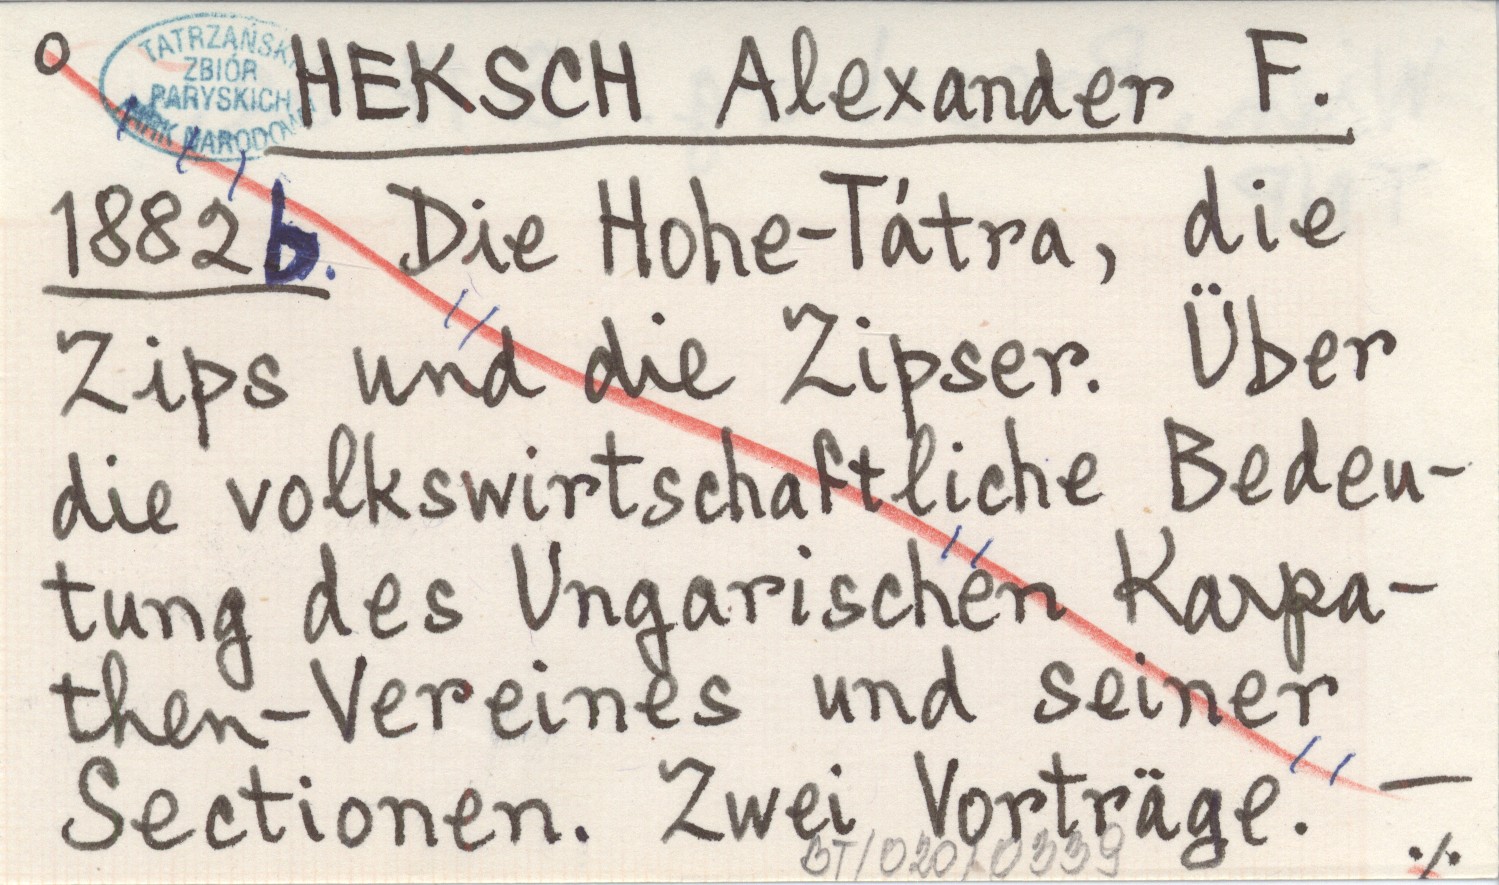 TATRZAŃSKI
ZBIÓR
PARYSKICH
PARK NARODOWY
HEKSCH Alexander F.
1882b. Die Hohe-Tátra, die
Zips und die Zipser. Über
die volkswirtschaftliche Bedeu-
tung des Ungarischen Karpa-
then-Vereines und seiner
Sectionen. Zwei Vorträge. —
BT/020/0339
./.